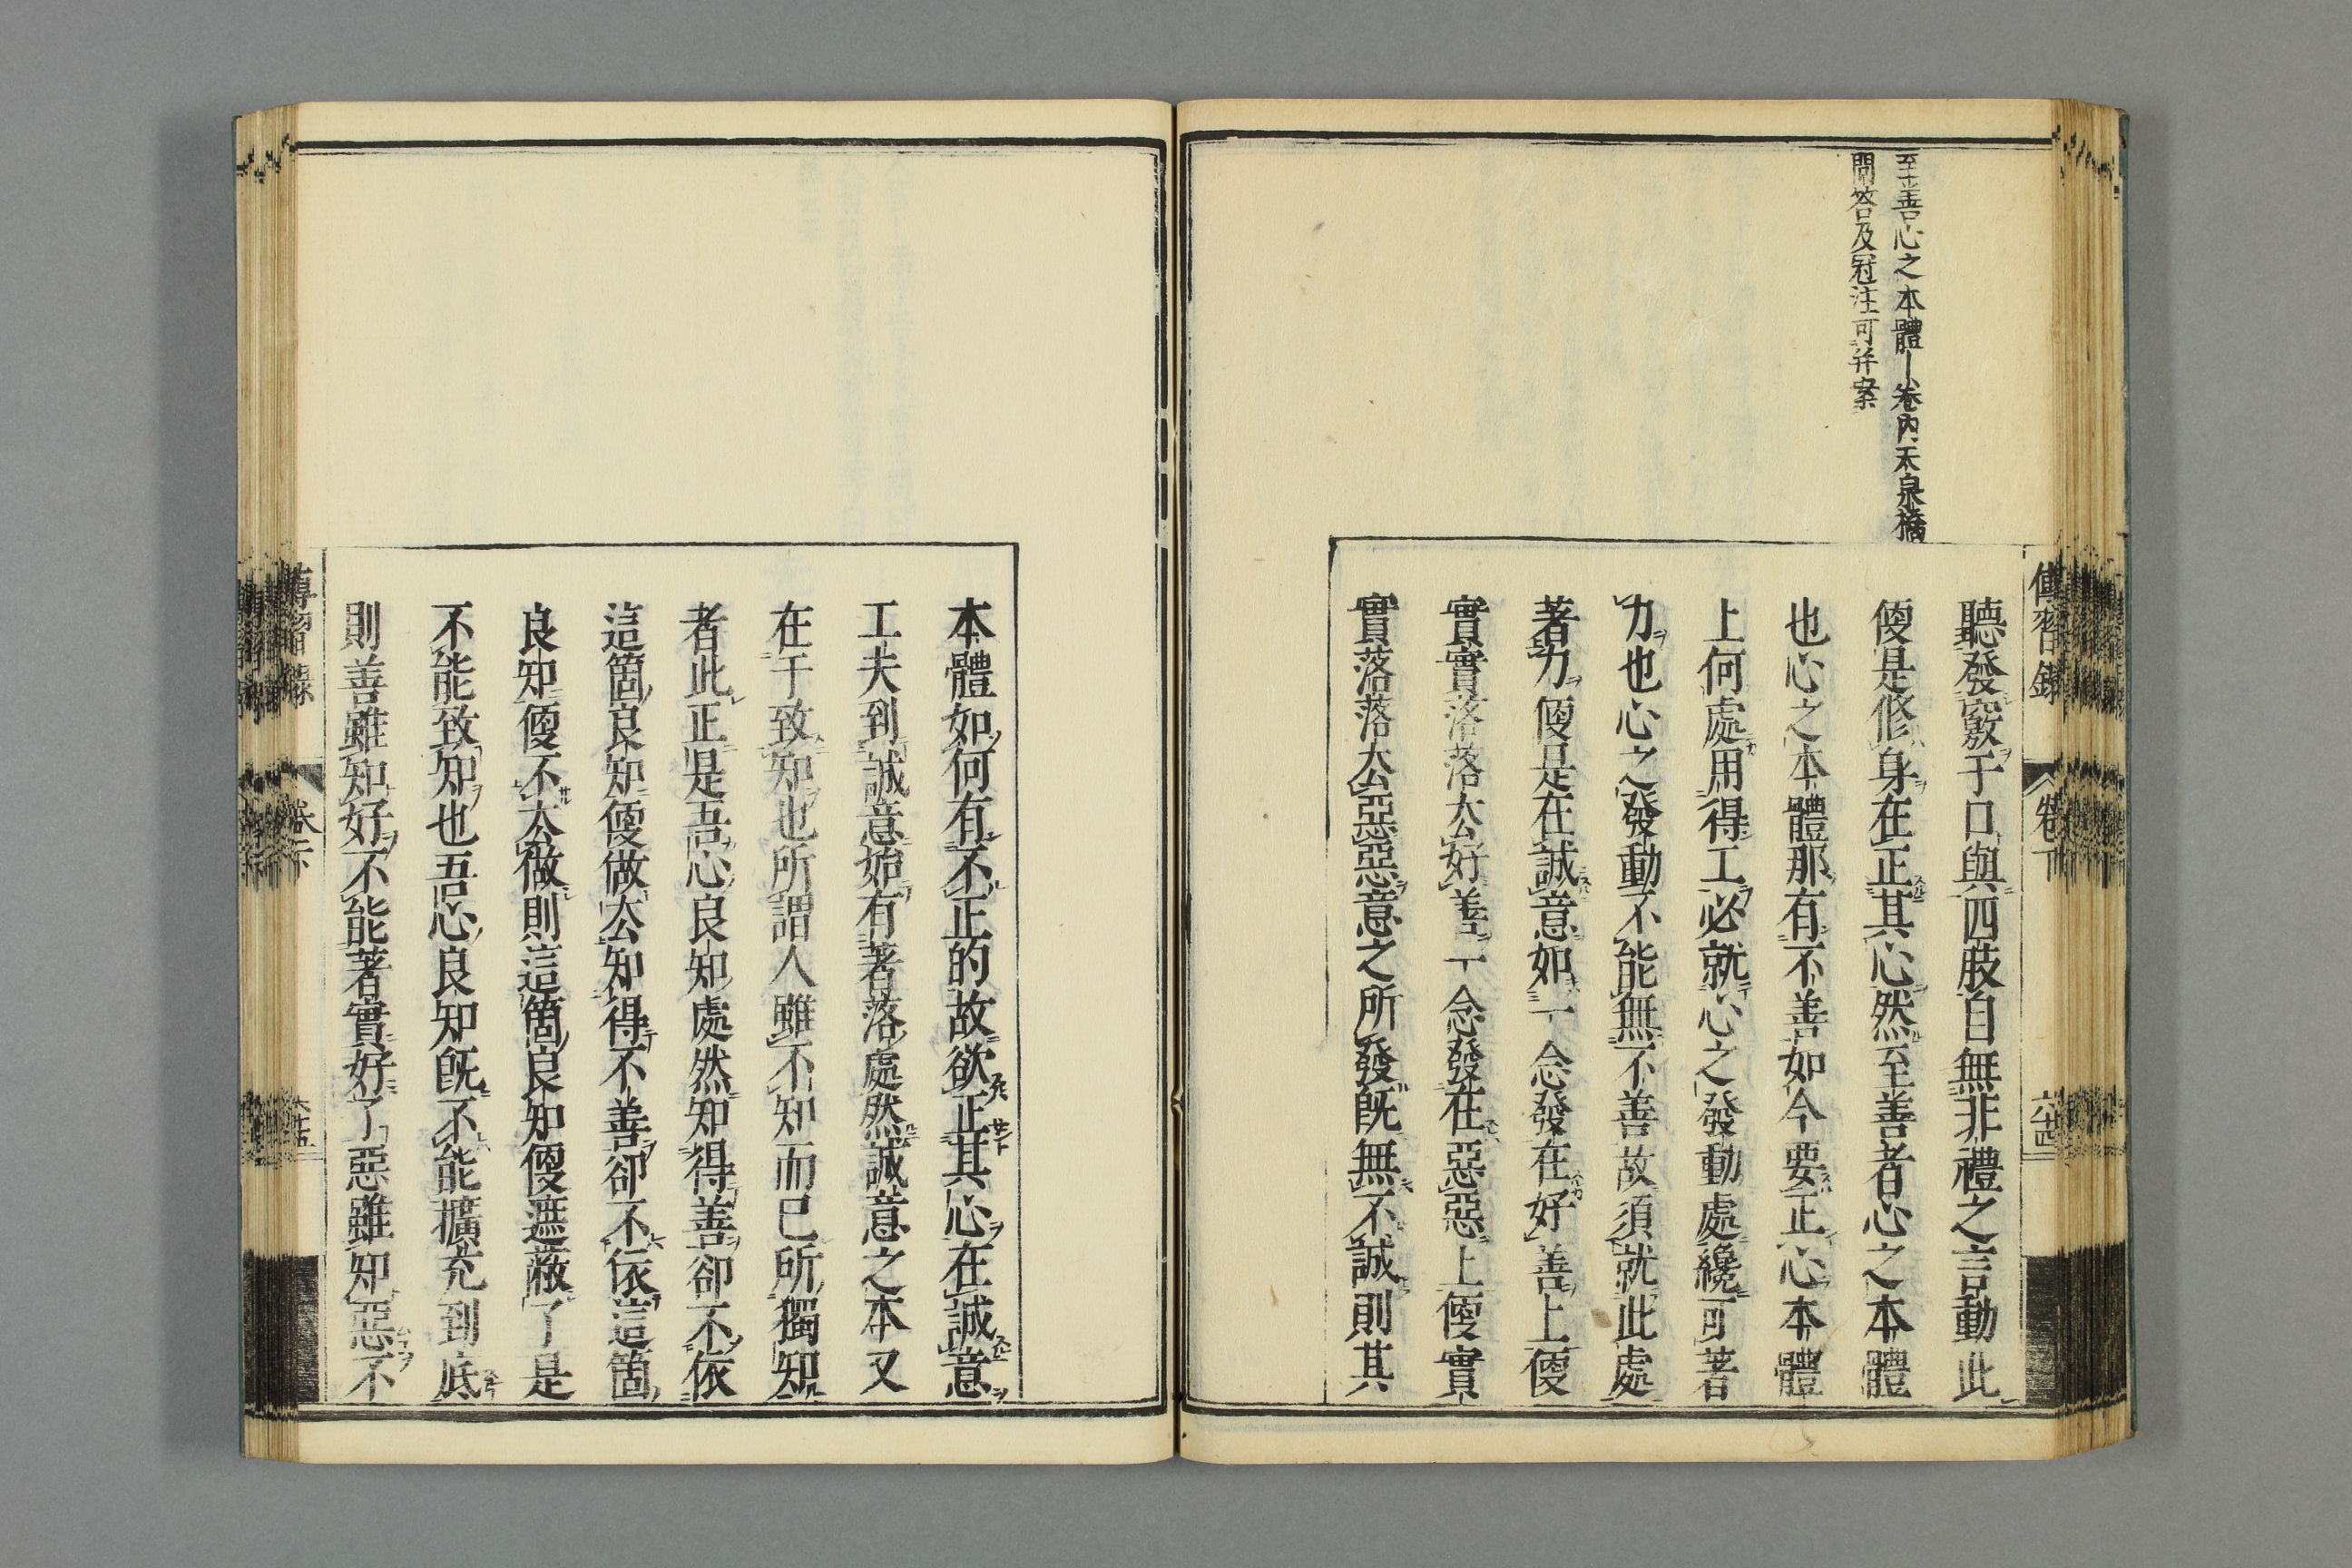 至善心之本體一卷内天泉橋
問答及冠注可并案
傳習錄 卷下 六十四
聽發竅于口與四肢自無非禮之言動此
便是修身在正其心然至善者心之本體
也心之本體那有不善如今要正心本體
上何處用得工必就心之發動處纔可著
力也心之發動不能無不善故須就此處
著力便是在誠意如一念發在好善上便
實實落落去好善一念發在惡惡上便實
實落落去惡惡意之所發既無不誠則其
本體如何有不正的故欲正其心在誠意
工夫到誠意始有著落處然誠意之本又
在于致知也所謂人雖不知而已所獨知
者此正是吾心良知處然知得善卻不依
這箇良知便做去知得不善卻不依這箇
良知便不去做則這箇良知便遮蔽了是
不能致知也吾心良知既不能擴充到底
則善雖知好不能著實好了惡雖知惡不
傳習錄 卷下 六十五